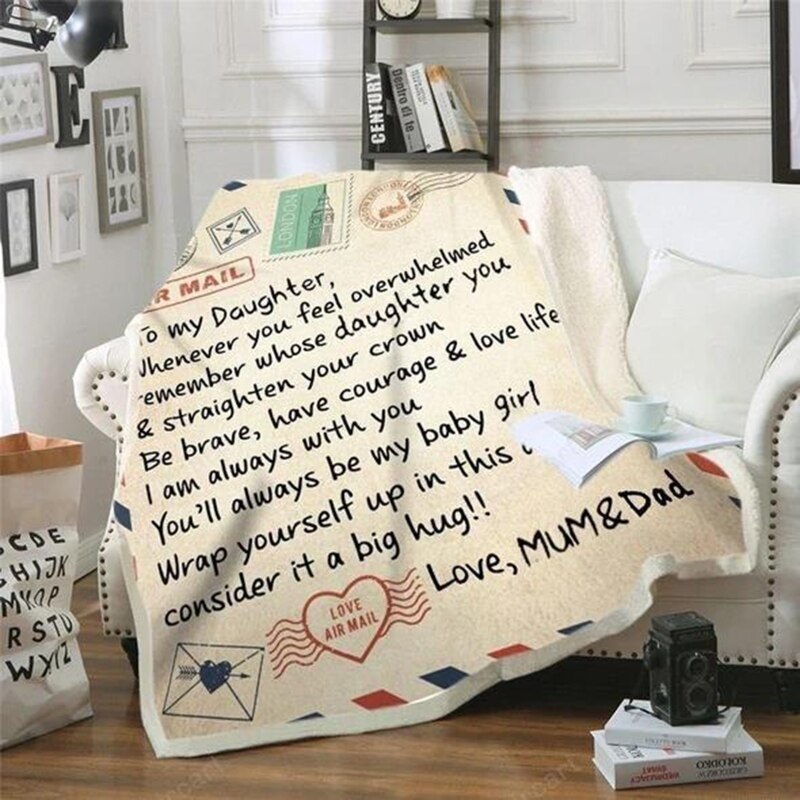 E
CENTURY
Dentro di te
LONDON
R MAIL
To my Daughter,
Whenever you feel overwhelmed
remember whose daughter you
& straighten your crown
Be brave, have courage & love life
I am always with you
You'll always be my baby girl
Wrap yourself up in this
consider it a big hug!!
Love, MUM&Dad
LOVE
AIR MAIL
CDE
GHIJK
MNOP
RSTU
WXYZ
KOŁODKO
WĘDRUJĄCY
ŚWIAT
GRZEGORZ
KOŁODKO